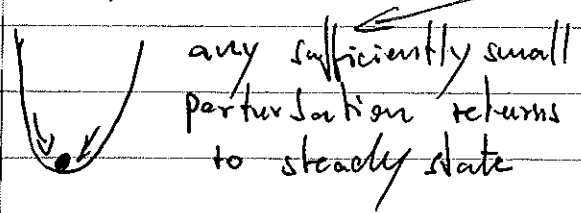 any sufficiently small
perturbation returns
to steady state